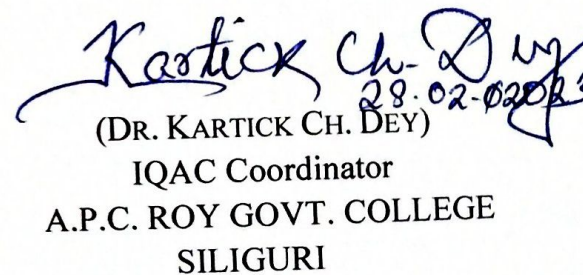 Kartick Ch. Dey
28.02.2023
(DR. KARTICK CH. DEY)
IQAC Coordinator
A.P.C. ROY GOVT. COLLEGE
SILIGURI